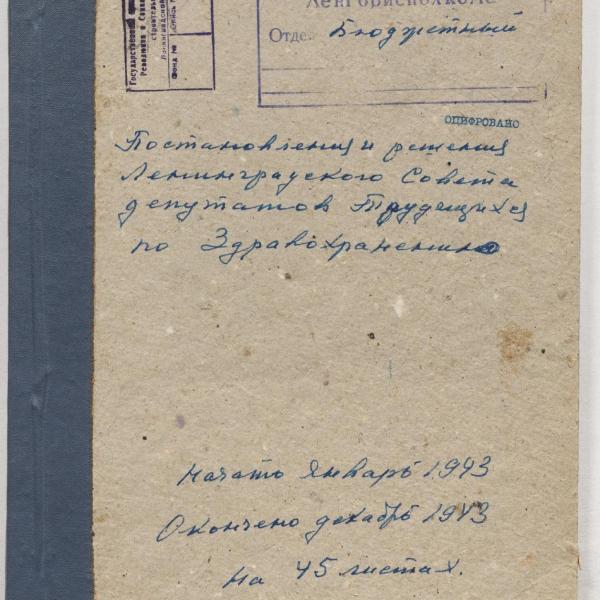 Государственный
Революции и
строительства
Ленинградской
Фонд №
Опись №
Ленгорисполкоме
Отде. Бюджетный
ОЦИФРОВАНО
Постановления и решения
Ленинградского Совета
депутатов Трудящихся
по Здравохранению
Начато Январь 1943
Окончено декабрь 1943
На 45 листах.